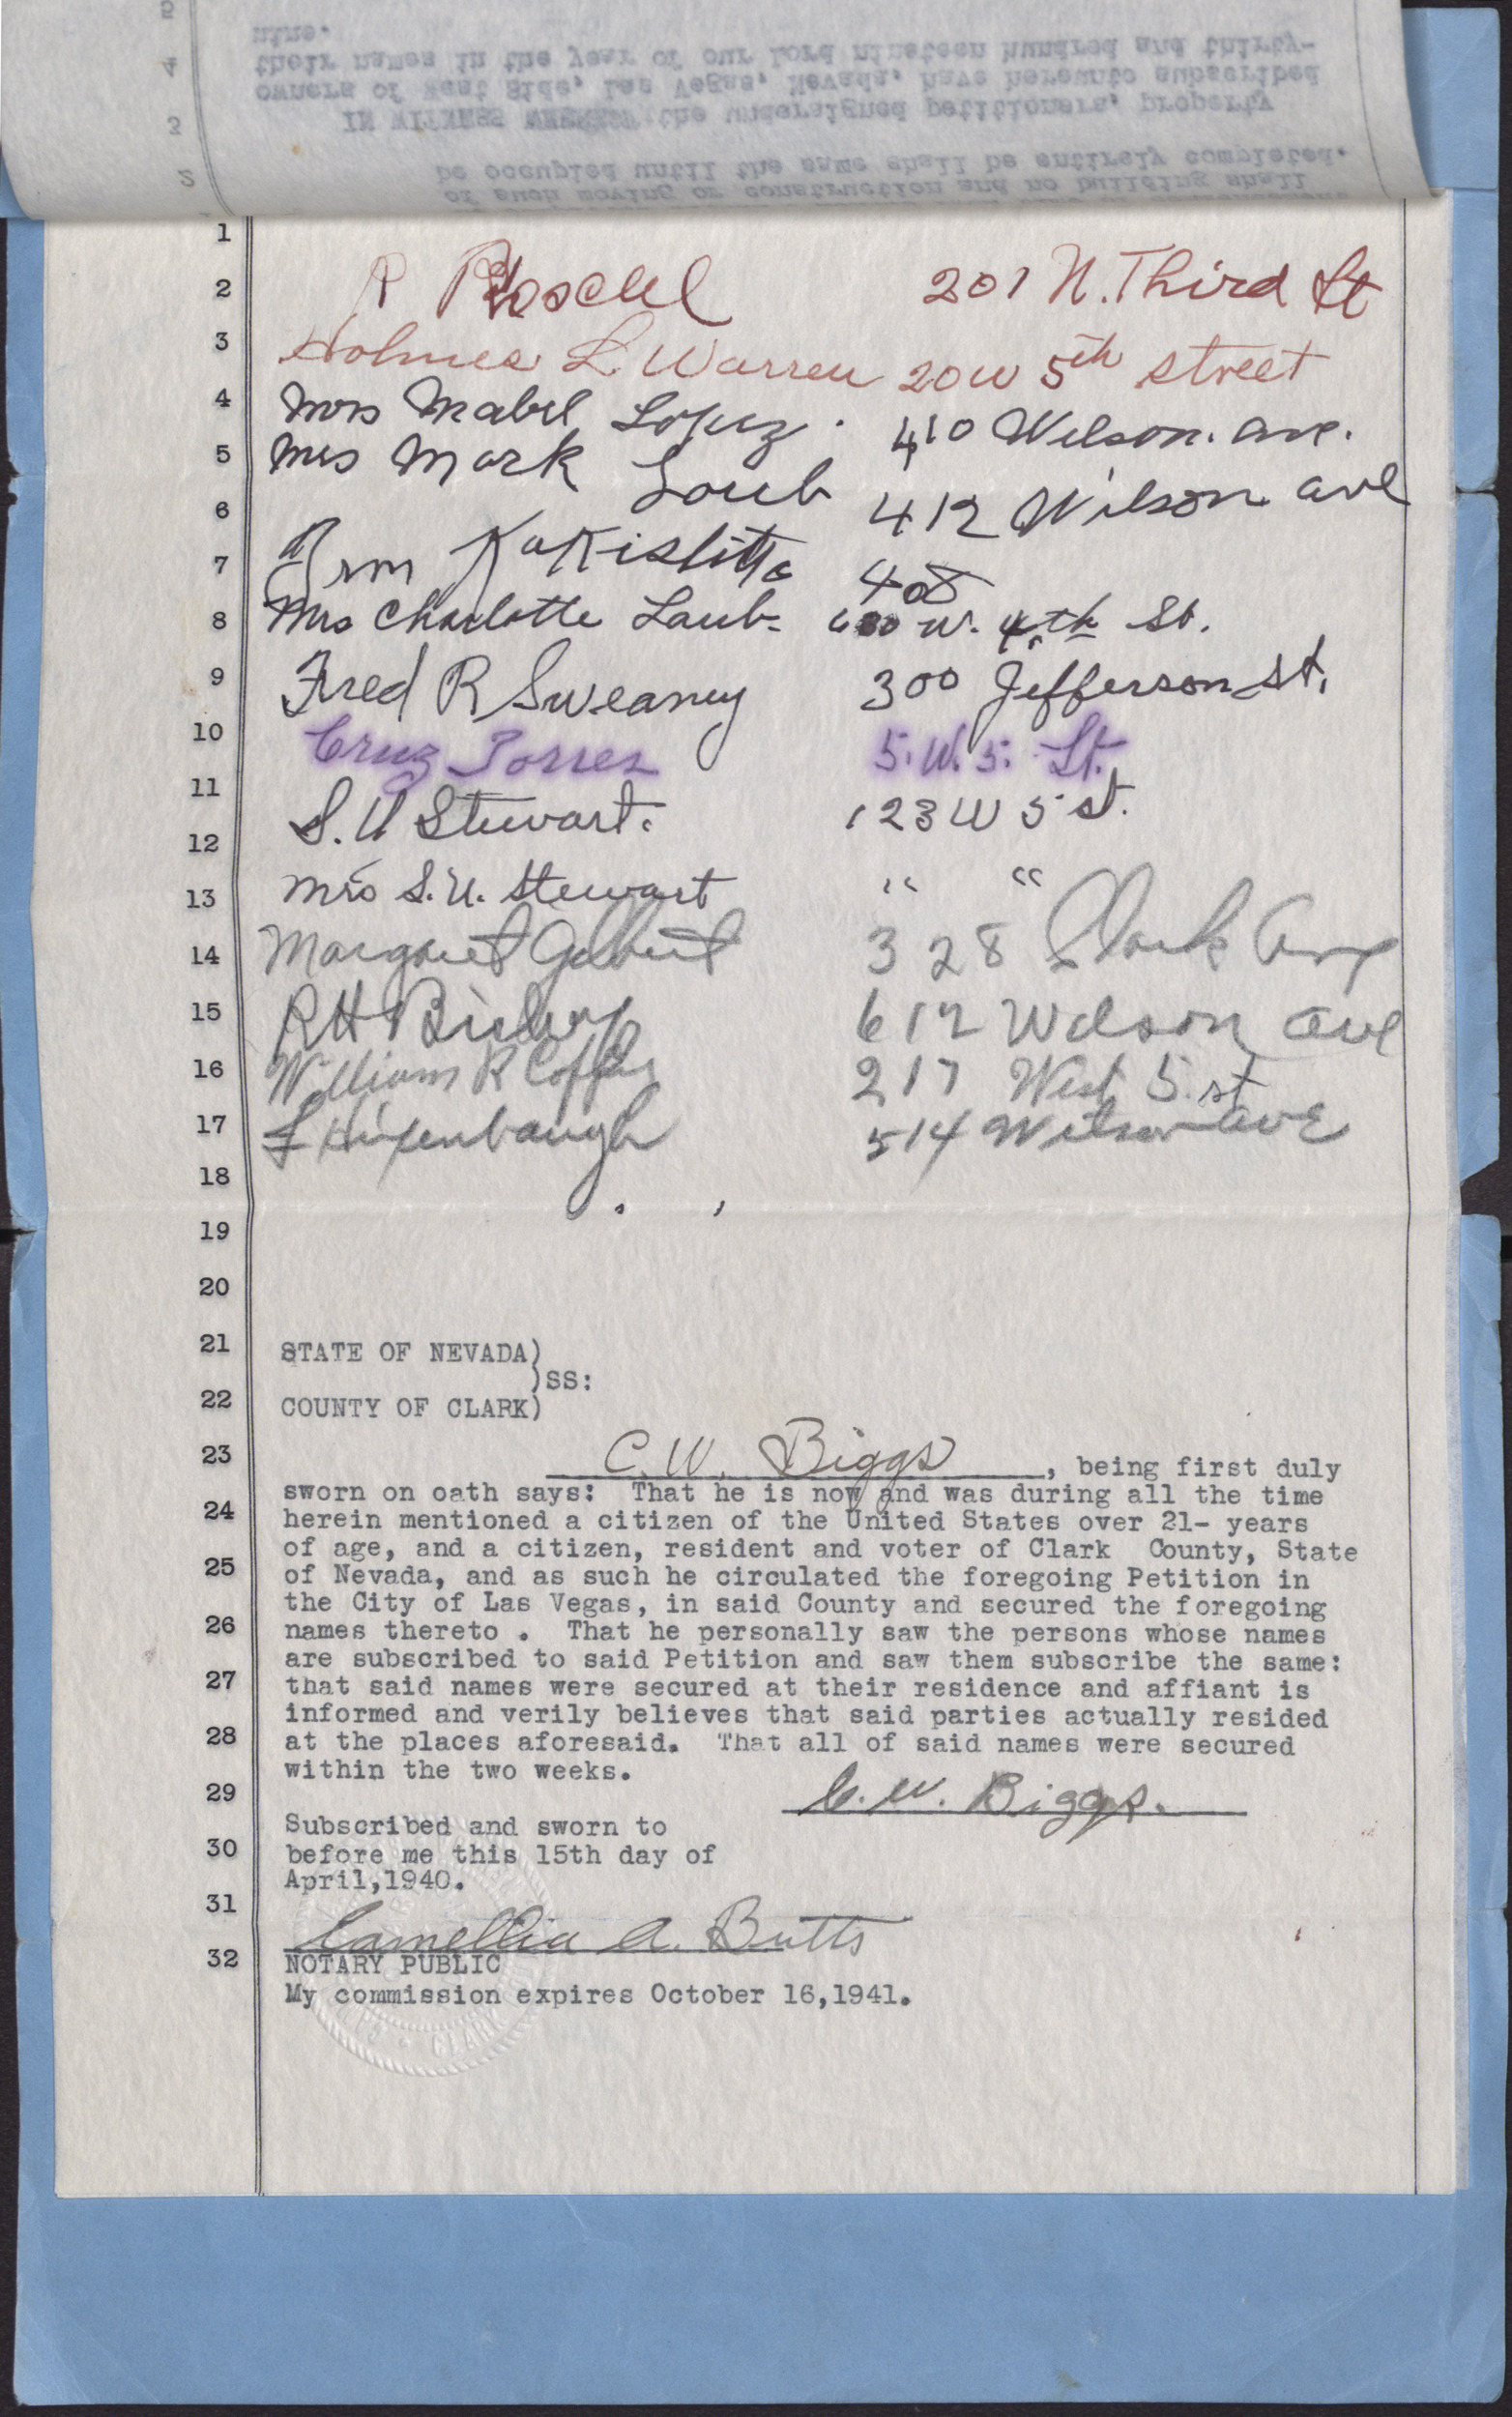 of such moving or construction and no building shall
be occupied until the same shall be entirely completed.
IN WITNESS WHEREOF the undersigned petitioners, property
owners of West Side, Las Vegas, Nevada, have hereunto subscribed
their names in the year of our Lord nineteen hundred and thirty-
nine.
2
3
4
5
1
2 R 201 N. Third St
3 Holmes L Warren 20 W 5th street
4 Mrs Mabel Lopez. 410 Wilson. ave.
5 Mrs Mark Laub 412 Wilson ave
6
7 408
8 Mrs Charlotte Laub- W. 4th St.
9 Fred R Sweaney 300 Jefferson St.
10 Cruz Torres 5. W. 5. St.
11 S. U Stewart. 123 W 5 st.
12
13 Mrs S. U. Stewart " "
14 Margaret 328 Clark Ave
15 RH Bishop 612 Wilson ave
16 William R 217 West 5. st
17 514 Wilson ave
18
19
20
21 STATE OF NEVADA)
)SS:
22 COUNTY OF CLARK)
23 C. W. Biggs, being first duly
sworn on oath says: That he is now and was during all the time
24 herein mentioned a citizen of the United States over 21- years
of age, and a citizen, resident and voter of Clark County, State
25 of Nevada, and as such he circulated the foregoing Petition in
the City of Las Vegas, in said County and secured the foregoing
26 names thereto . That he personally saw the persons whose names
are subscribed to said Petition and saw them subscribe the same:
27 that said names were secured at their residence and affiant is
informed and verily believes that said parties actually resided
28 at the places aforesaid. That all of said names were secured
within the two weeks.
29 C. W. Biggs.
Subscribed and sworn to
30 before me this 15th day of
April,1940.
31
Camellia A. Butts
32 NOTARY PUBLIC
My commission expires October 16,1941.